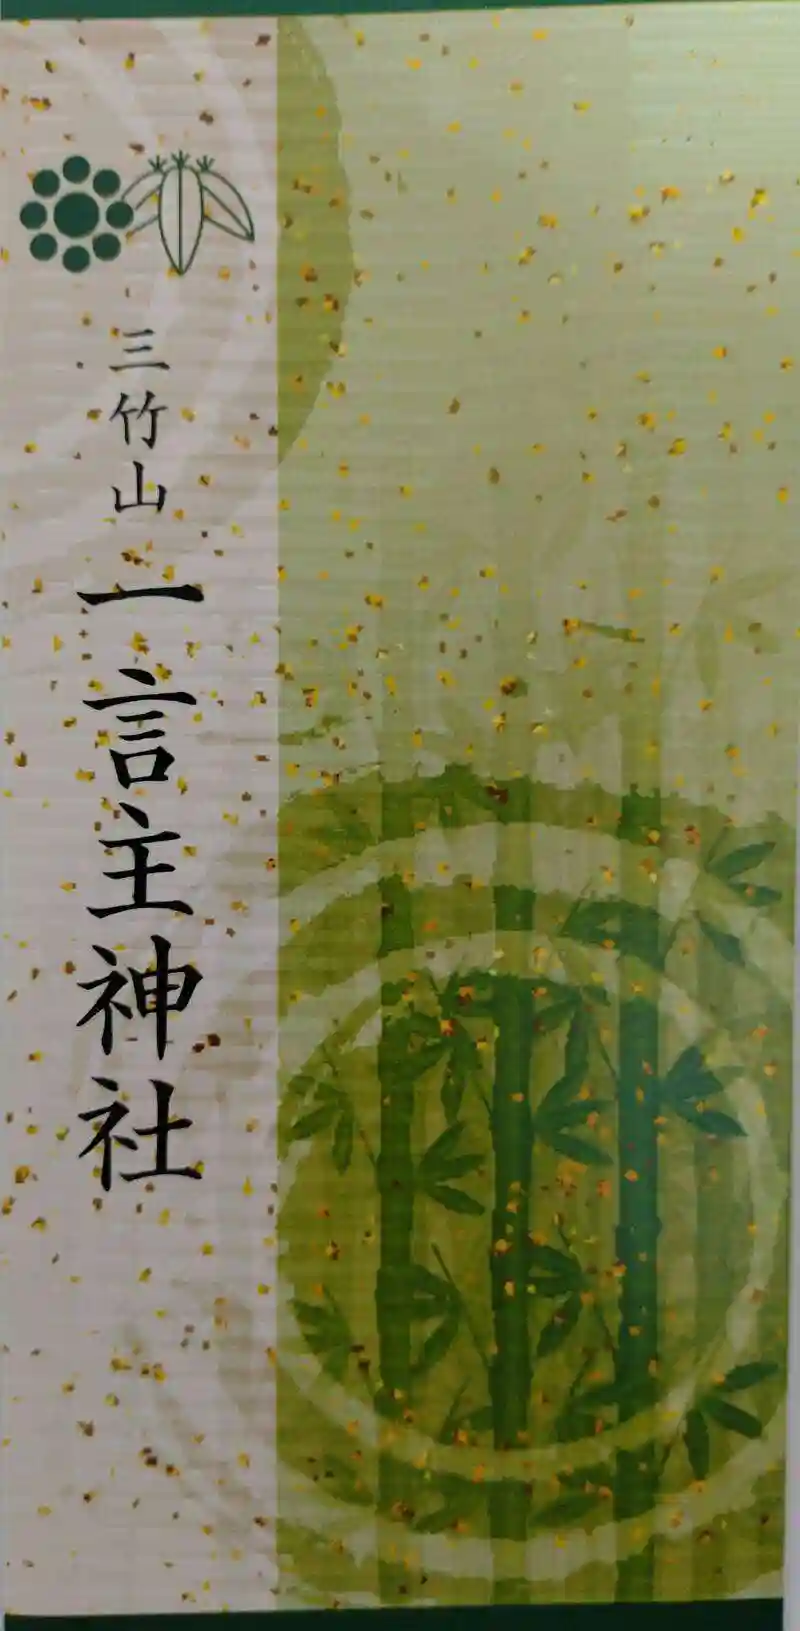 三竹山
一言主神社